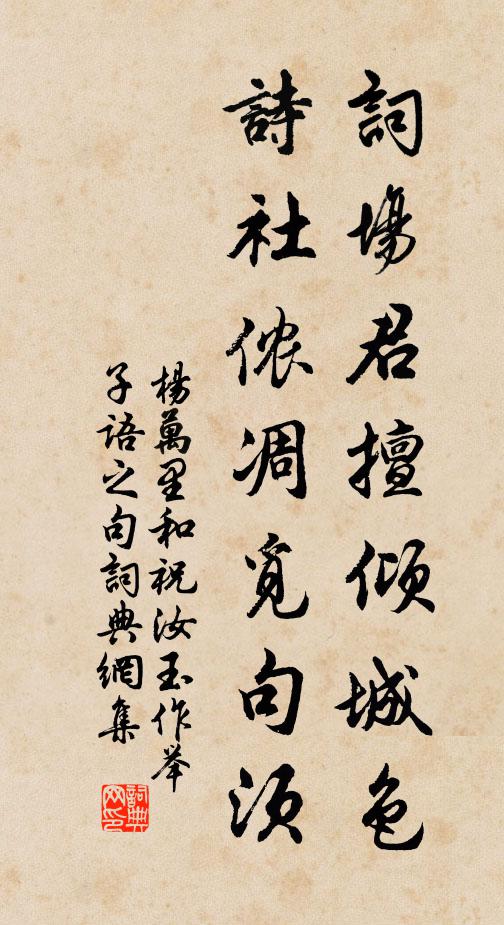 詞場君擅傾城色
詩社侬凋覓句須
楊萬里和祝汝玉作举
子語之句詞典網集
詞典网印